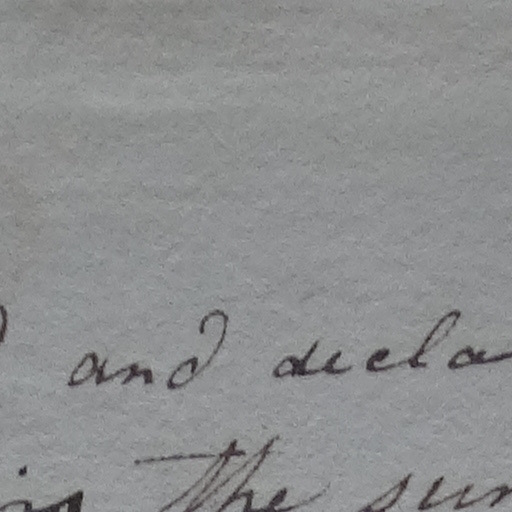 and decla
the sur